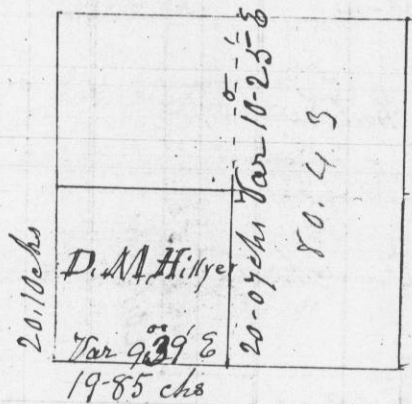 20.10 chs
D. M. Hillyer
Var 9°39' E
19-85 chs
20-07 chs Var 10°-25' E
80.43